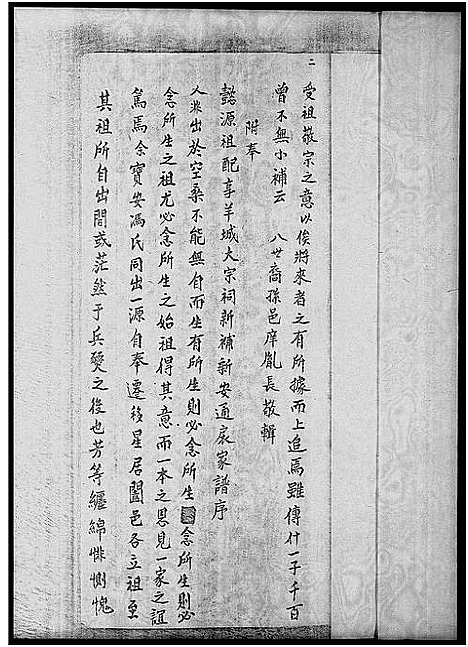 二
受祖敬宗之意以俟將來者之有所據而上追焉雖傳什一于千百
曾不無小補云　八世裔孫邑庠胤長敬輯
附奉
懿源祖配享羊城大宗祠新補新安通族家譜序
人非出於空桑不能無自而生有所生則必念所生念所生則必
念所生之祖尤必念所生之始祖得其意而一本之恩見一家之誼
篤焉余寶安馮氏同出一源自奉遷移星居闔邑各立祖至
其祖所自出間或茫然于兵燹之後也芳等纏綿悱惻愧